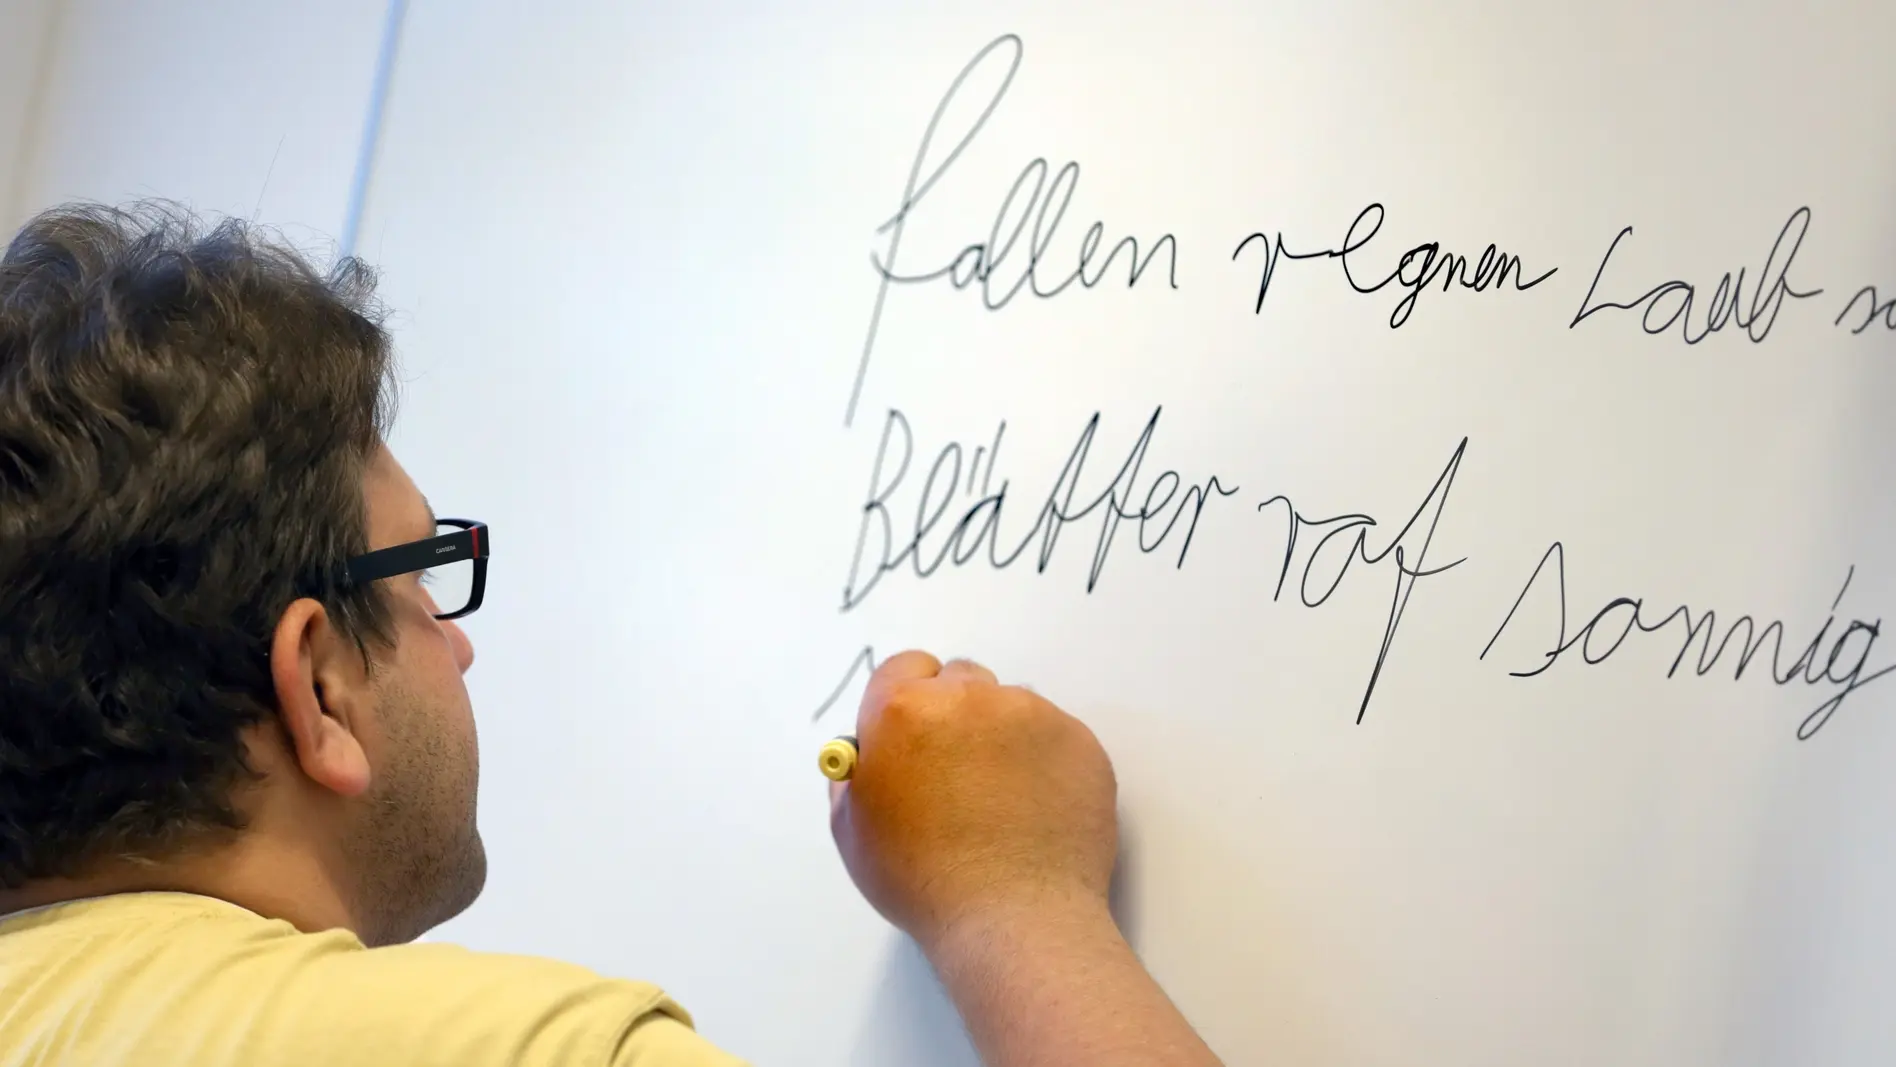 fallen regnen Laub
Blätter rot sonnig
CARRERA